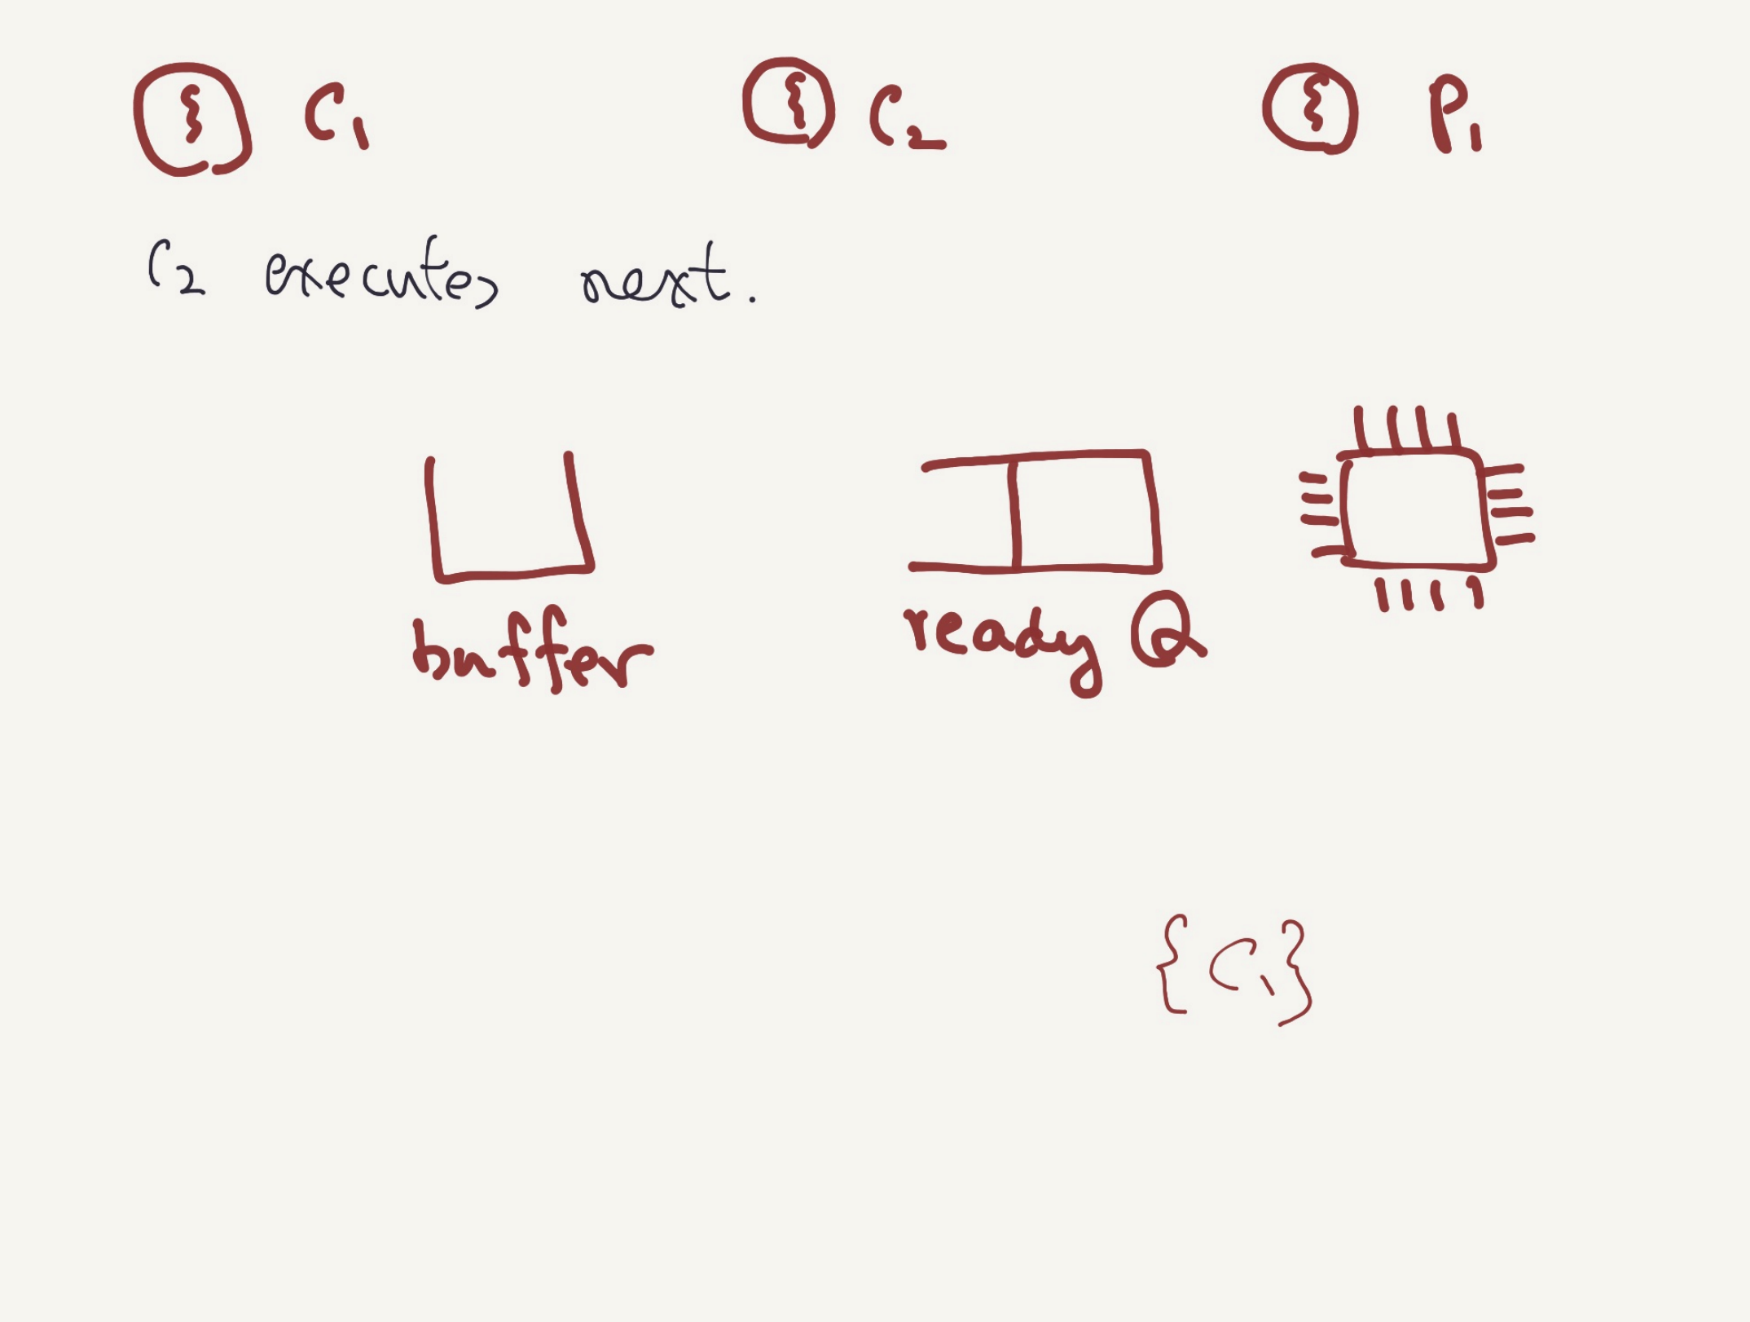 C₁ C₂ P₁
C₂ executes next.
buffer ready Q
{C₁}